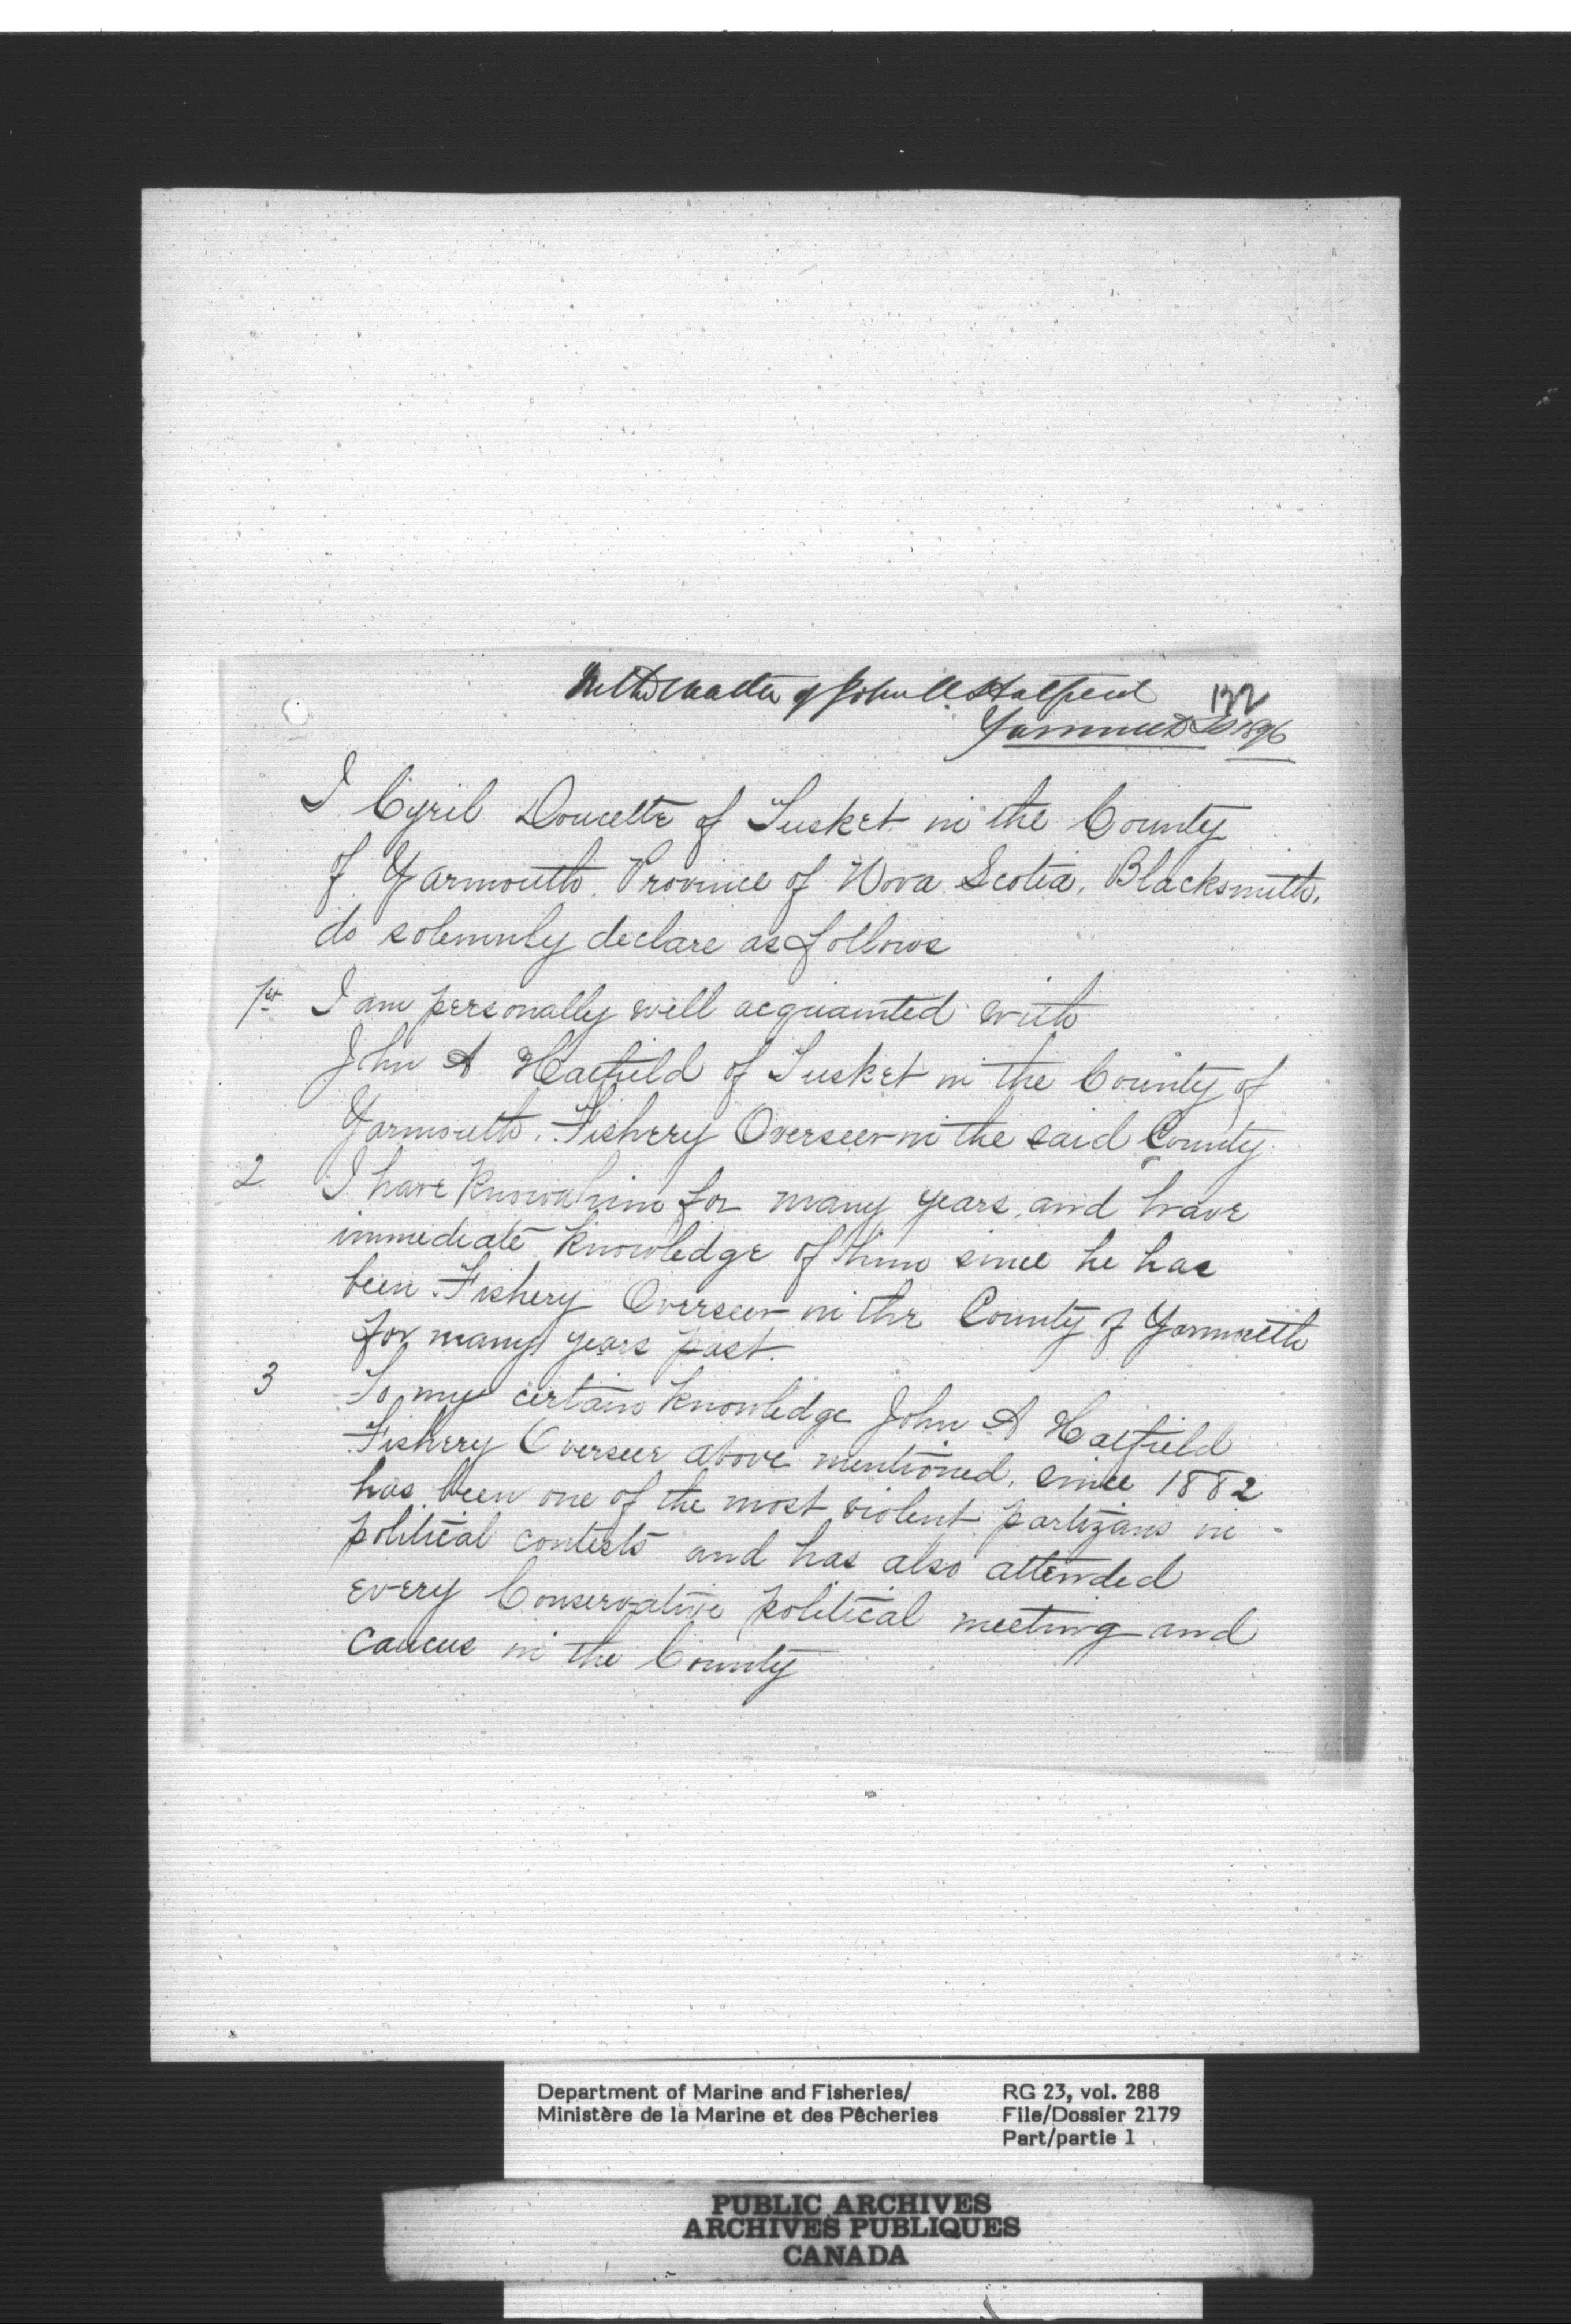 In the Matter of John A. Hatfield
132
Yarmouth 1896
I Cyril Doucette of Tusket in the County
of Yarmouth, Province of Nova Scotia, Blacksmith,
do solemnly declare as follows
1st I am personally well acquainted with
John A Hatfield of Tusket in the County of
Yarmouth, Fishery Overseer in the said County
2 I have known him for many years, and have
immediate knowledge of him since he has
been Fishery Overseer in the County of Yarmouth
for many years past.
3 To my certain knowledge John A Hatfield
Fishery Overseer above mentioned, since 1882
has been one of the most violent partizans in
political contests and has also attended
every Conservative political meeting and
caucus in the County
Department of Marine and Fisheries/
Ministère de la Marine et des Pêcheries
RG 23, vol. 288
File/Dossier 2179
Part/partie 1
PUBLIC ARCHIVES
ARCHIVES PUBLIQUES
CANADA